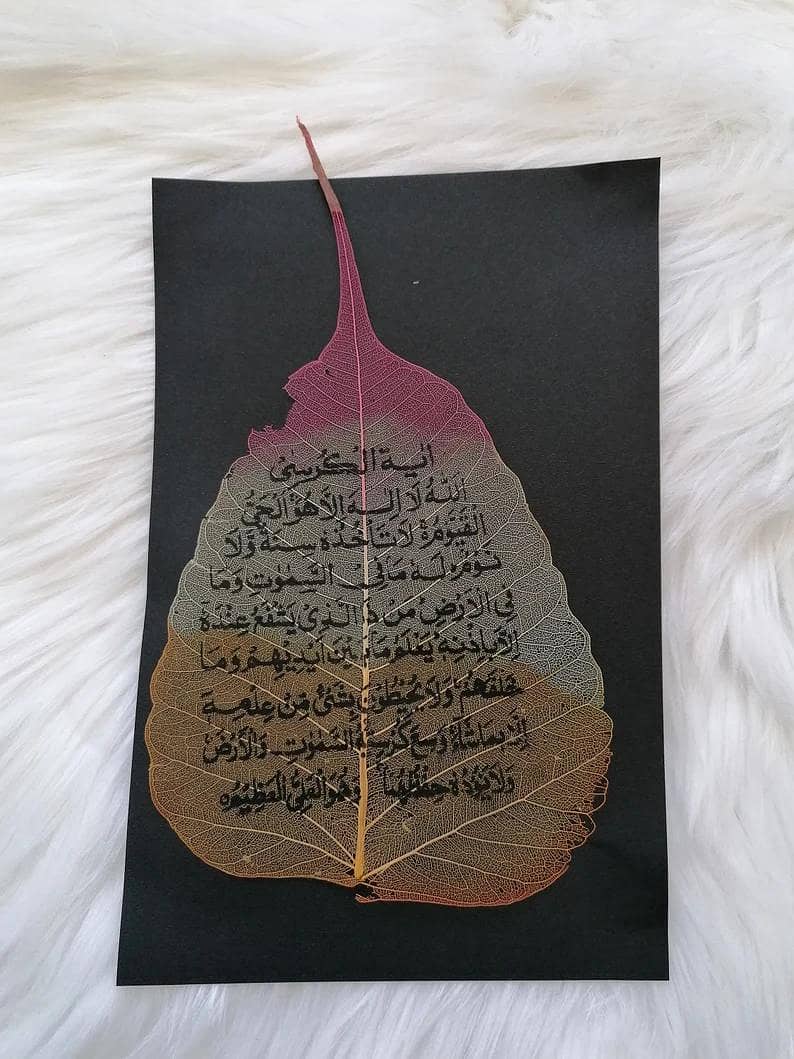 اٰية الكُرسِىْ
اَللهُ لَا اِلٰـهَ اِلَّا هُوَ اَلْحَىُّ
الْقَيُّومُ لَا تَاْخُذُهٗ سِنَةٌ وَّلَا
نَوْمٌ لَهٗ مَا فِىْ السَّمٰوٰتِ وَمَا
فِى الْاَرْضِ مَنْ ذَا الَّذِىْ يَشْفَعُ عِنْدَهٗ
اِلَّا بِاِذْنِهٖ يَعْلَمُ مَا بَيْنَ اَيْدِيْهِمْ وَمَا
خَلْفَهُمْ وَلَا يُحِيْطُوْنَ بِشَىْءٍ مِّنْ عِلْمِهٖ
اِلَّا بِمَا شَآءَ وَسِعَ كُرْسِيُّهُ السَّمٰوٰتِ وَالْاَرْضَ
وَلَا يَئُوْدُهٗ حِفْظُهُمَا وَهُوَ الْعَلِىُّ الْعَظِيْمُ